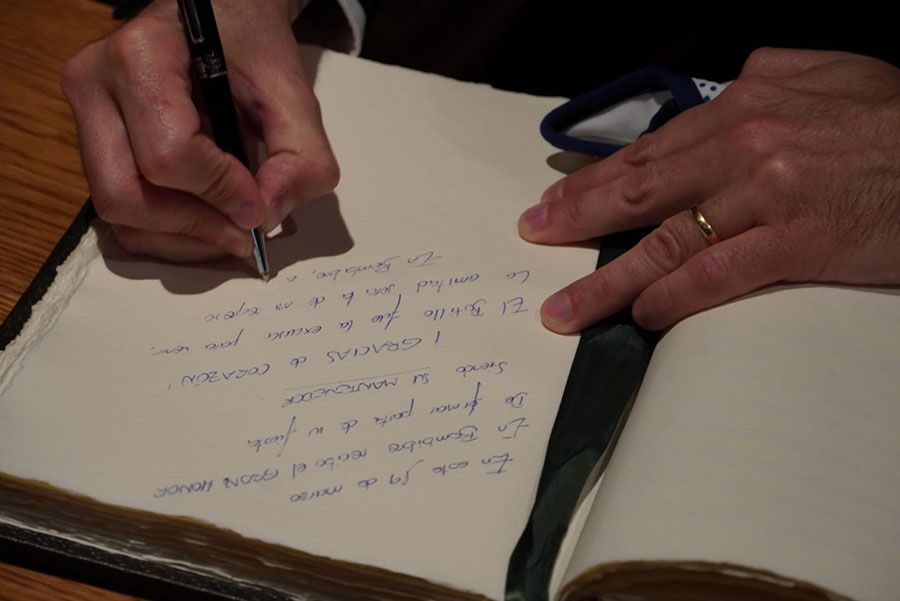 En este 19 de marzo
En Bembibre recibo el GRAN HONOR
De formar parte de tu fiesta,
Siendo SU MANTENEDOR
¡ GRACIAS de CORAZÓN!
El Botillo fue la excusa para venir.
La amistad será la de mi regreso.
En Bembibre, a